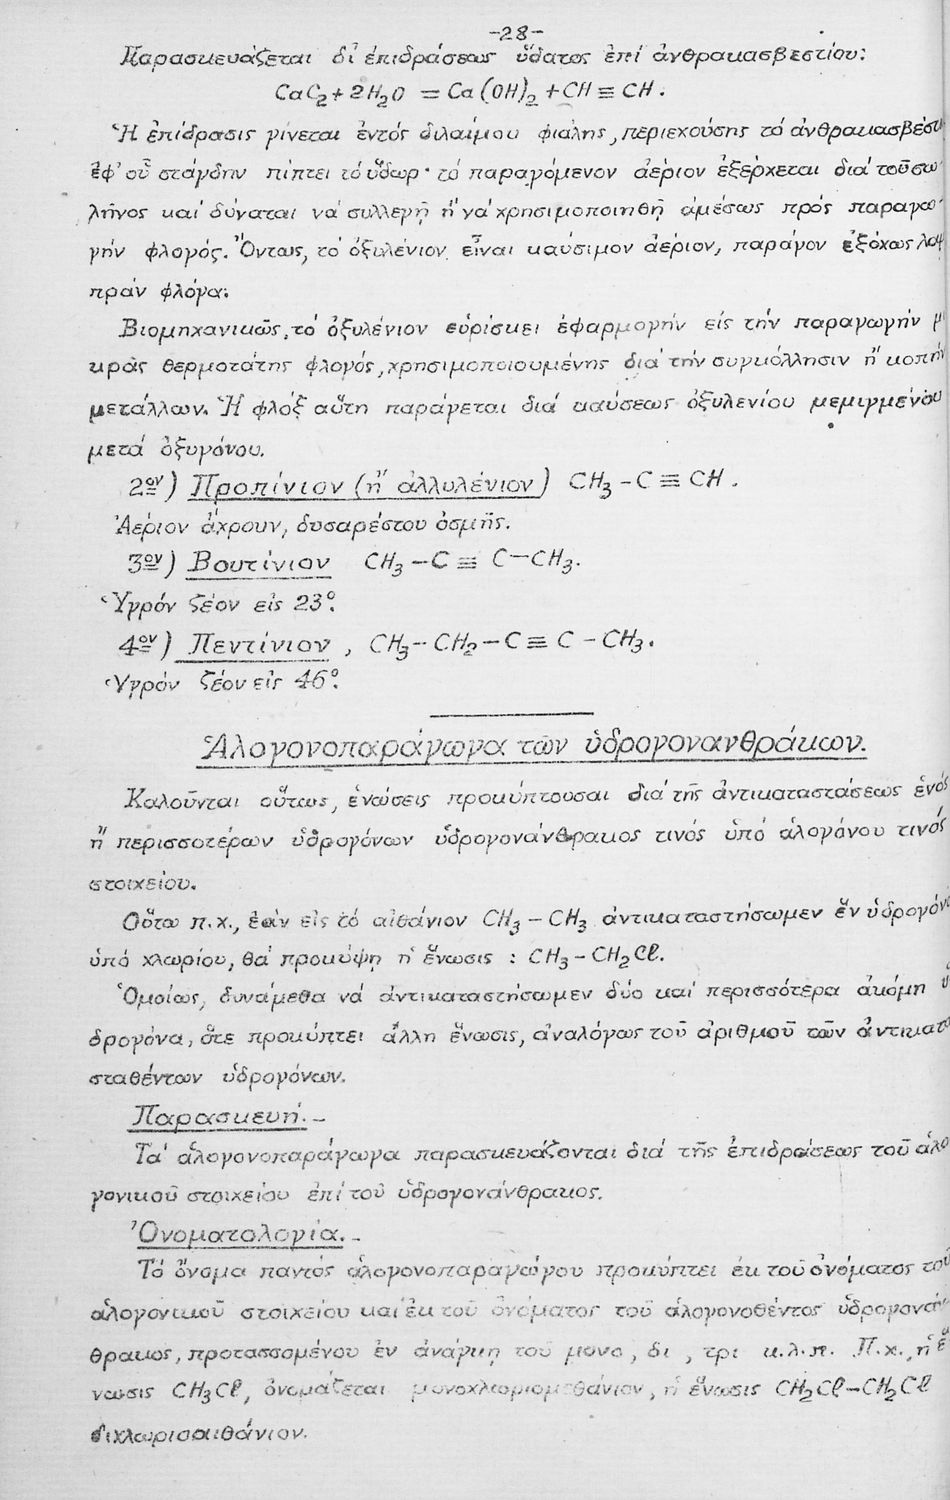 -28-
Παρασκευάζεται δι' ἐπιδράσεως ὕδατος ἐπί ἀνθρακασβεστίου:
CaC₂+2H₂O = Ca(OH)₂ +CH≡CH.
Ἡ ἐπίδρασις γίνεται ἐντός διλαίμου φιάλης, περιεχούσης τό ἀνθρακασβέστι
ἐφ' οὗ στάγδην πίπτει τό ὕδωρ· τό παραγόμενον ἀέριον ἐξέρχεται διά τοῦ σω-
λῆνος καί δύναται νά συλλεγῇ ἤ νά χρησιμοποιηθῇ ἀμέσως πρός παραγω-
γήν φλογός. Ὄντως, τό ὀξυλένιον εἶναι καύσιμον ἀέριον, παράγον ἐξόχως λαμ
πράν φλόγα.
Βιομηχανικῶς, τό ὀξυλένιον εὑρίσκει ἐφαρμογήν εἰς τήν παραγωγήν μ
κρᾶς θερμοτάτης φλογός, χρησιμοποιουμένης διά τήν συγκόλλησιν ἤ κοπήν
μετάλλων. Ἡ φλόξ αὕτη παράγεται διά καύσεως ὀξυλενίου μεμιγμένου
μετά ὀξυγόνου.
2ον) Προπίνιον (ἤ ἀλλυλένιον) CH₃-C≡CH.
Ἀέριον ἄχρουν, δυσαρέστου ὀσμῆς.
3ον) Βουτίνιον CH₃-C≡C-CH₃.
Ὑγρόν ζέον εἰς 23°.
4ον) Πεντίνιον, CH₃-CH₂-C≡C-CH₃.
Ὑγρόν ζέον εἰς 46°.
Ἁλογονοπαράγωγα τῶν ὑδρογονανθράκων.
Καλοῦνται οὕτως, ἑνώσεις προκύπτουσαι διά τῆς ἀντικαταστάσεως ἑνός
ἤ περισσοτέρων ὑδρογόνων ὑδρογονάνθρακος τινός ὑπό ἁλογόνου τινός
στοιχείου.
Οὕτω π.χ., ἐάν εἰς τό αἰθάνιον CH₃-CH₃ ἀντικαταστήσωμεν ἕν ὑδρογόνο
ὑπό χλωρίου, θά προκύψῃ ἡ ἕνωσις : CH₃-CH₂Cl.
Ὁμοίως, δυνάμεθα νά ἀντικαταστήσωμεν δύο καί περισσότερα ἀκόμη ὑ
δρογόνα, ὅτε προκύπτει ἄλλη ἕνωσις, ἀναλόγως τοῦ ἀριθμοῦ τῶν ἀντικατα
σταθέντων ὑδρογόνων.
Παρασκευή.-
Τά ἁλογονοπαράγωγα παρασκευάζονται διά τῆς ἐπιδράσεως τοῦ ἁλο
γονικοῦ στοιχείου ἐπί τοῦ ὑδρογονάνθρακος.
Ὀνοματολογία.-
Τό ὄνομα παντός ἁλογονοπαραγώγου προκύπτει ἐκ τοῦ ὀνόματος τοῦ
ἁλογονικοῦ στοιχείου καί ἐκ τοῦ ὀνόματος τοῦ ἁλογονοθέντος ὑδρογονάν-
θρακος, προτασσομένου ἐν ἀνάγκῃ τοῦ μονο, δι, τρι κ.λ.π. Π.χ., ἡ ἕ
νωσις CH₃Cl, ὀνομάζεται μονοχλωριομεθάνιον, ἡ ἕνωσις CH₂Cl-CH₂Cl
διχλωριοαιθάνιον.